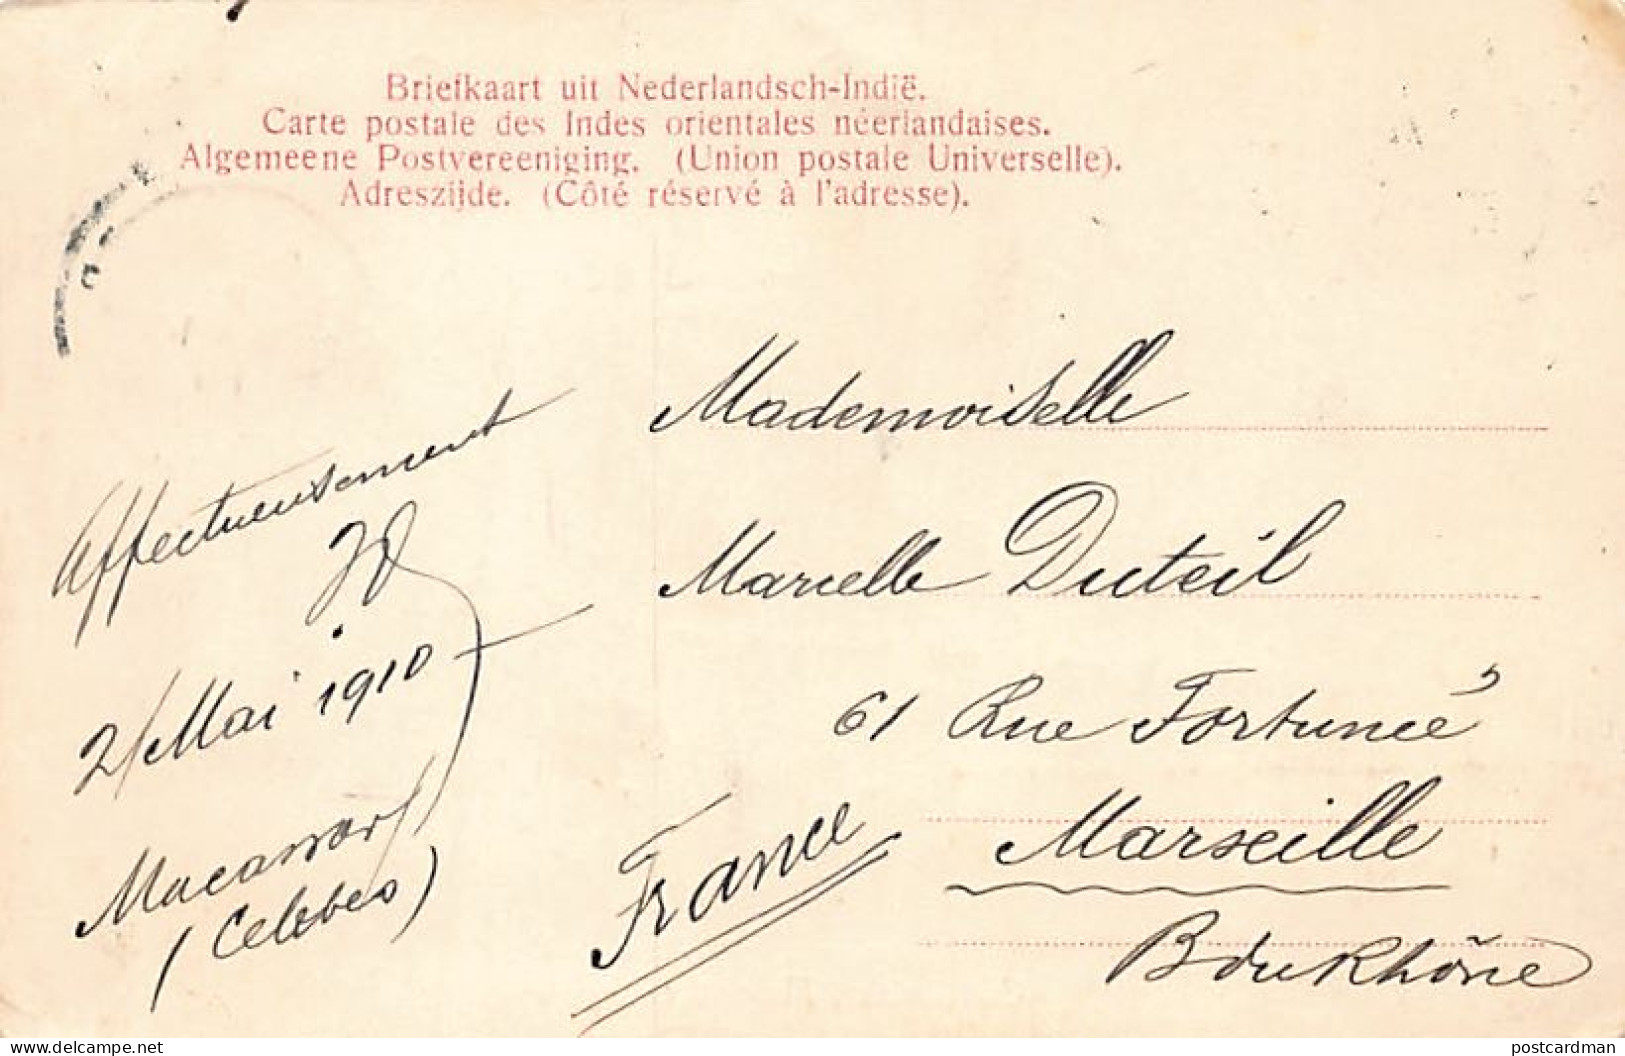 Briefkaart uit Nederlandsch-Indië.
Carte postale des Indes orientales néerlandaises.
Algemeene Postvereeniging. (Union postale Universelle).
Adreszijde. (Côté réservé à l'adresse).
Affectueusement
2/Mai 1910
Macassar
(Celebes)
Mademoiselle
Marcelle Duteil
61 Rue Fortuneé
Marseille
B du Rhône
France
www.delcampe.net
postcardman